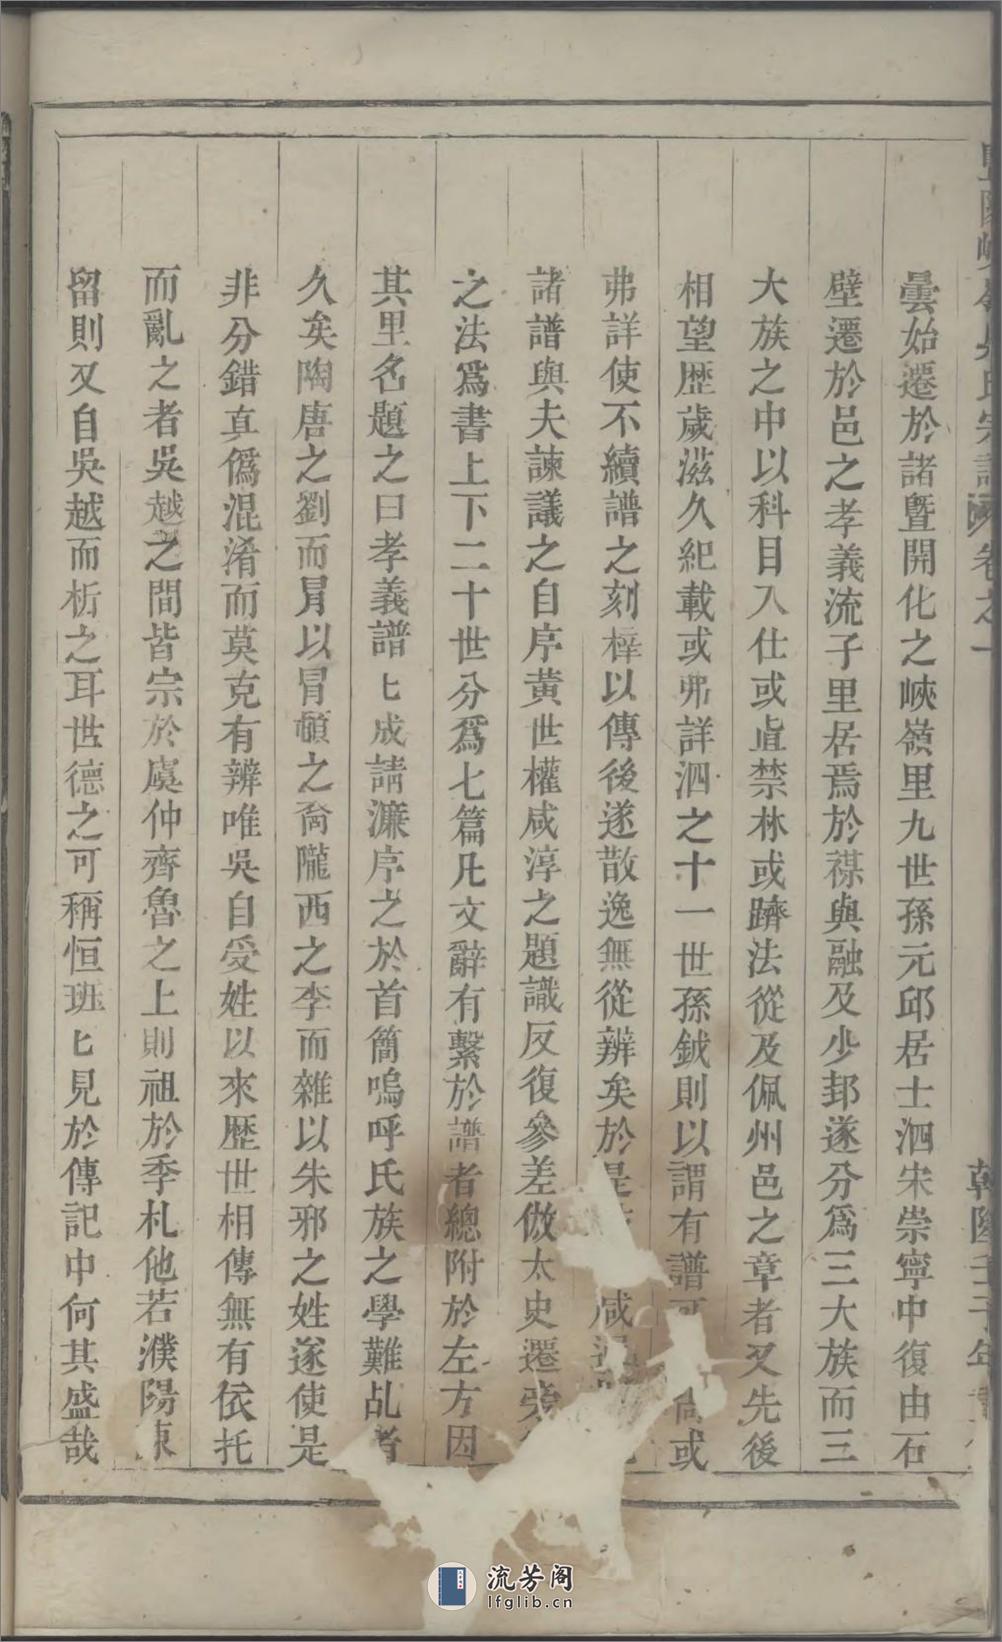 吳氏宗譜 卷之一
曇始遷於諸暨開化之峽嶺里九世孫元邱居士泗宋崇寧中復由石
壁遷於邑之孝義流子里居焉於禖與融及少邽遂分爲三大族而三
大族之中以科目入仕或直禁林或躋法從及佩州邑之章者又先後
相望歴歲滋久紀載或弗詳泗之十一世孫鉞則以謂有譜 尚或
弗詳使不續譜之刻梓以傳後遂散逸無從辨矣於是 咸
諸譜與夫諫議之自序黄世權咸淳之題識反復參差倣太史遷旁
之法爲書上下二十世分爲七篇凡文辭有繫於譜者總附於左方因
其里名題之曰孝義譜匕成請濂序之於首簡嗚呼氏族之學難乩者
久矣陶唐之劉而冐以冒頓之裔隴西之李而雜以朱邪之姓遂使是
非分錯真僞混淆而莫克有辨唯吳自受姓以來歴世相傳無有依托
而亂之者吳越之間皆宗於虞仲齊魯之上則祖於季札他若濮陽
留則又自吳越而析之耳世德之可稱恒班匕見於傳記中何其盛哉
流芳阁
lfglib.cn